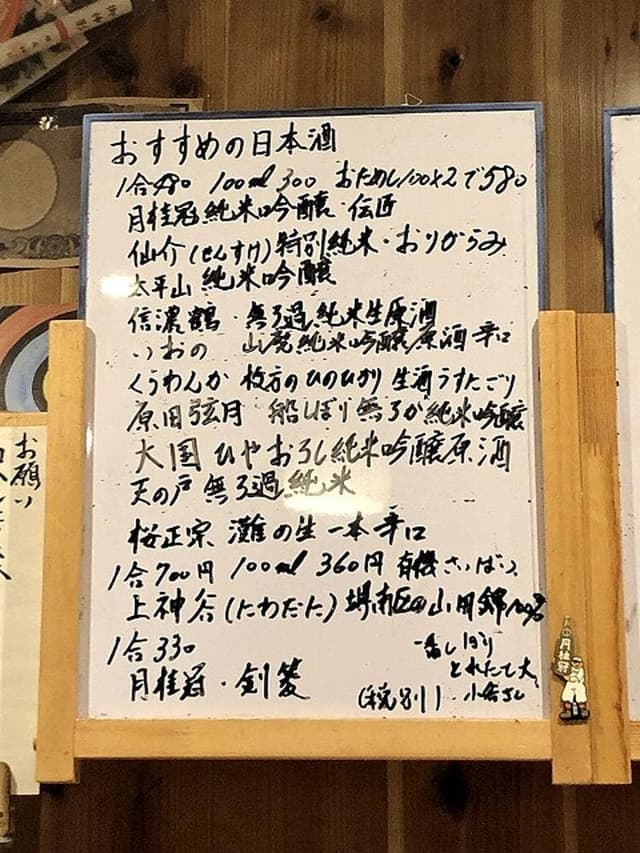 おすすめの日本酒
1合480 100ml 300 おためし100×2で580
月桂冠 純米吟醸・伝匠
仙介(せんすけ)特別純米・おりがらみ
太平山 純米吟醸
信濃鶴・無ろ過純米生原酒
いおの 山廃純米吟醸原酒 辛口
くらわんか 枚方のひのひかり 生酒うすにごり
原田弦月 船しぼり無ろか純米吟醸
大国 ひやおろし純米吟醸原酒
天の戸 無ろ過純米
桜正宗 灘の生一本 辛口
1合700円 100ml 360円 有機
上神谷(にわだに) 堺南区の山田錦100%
1合330
月桂冠・剣菱
(税別)
一番しぼり
とれたて
お願い
月桂冠